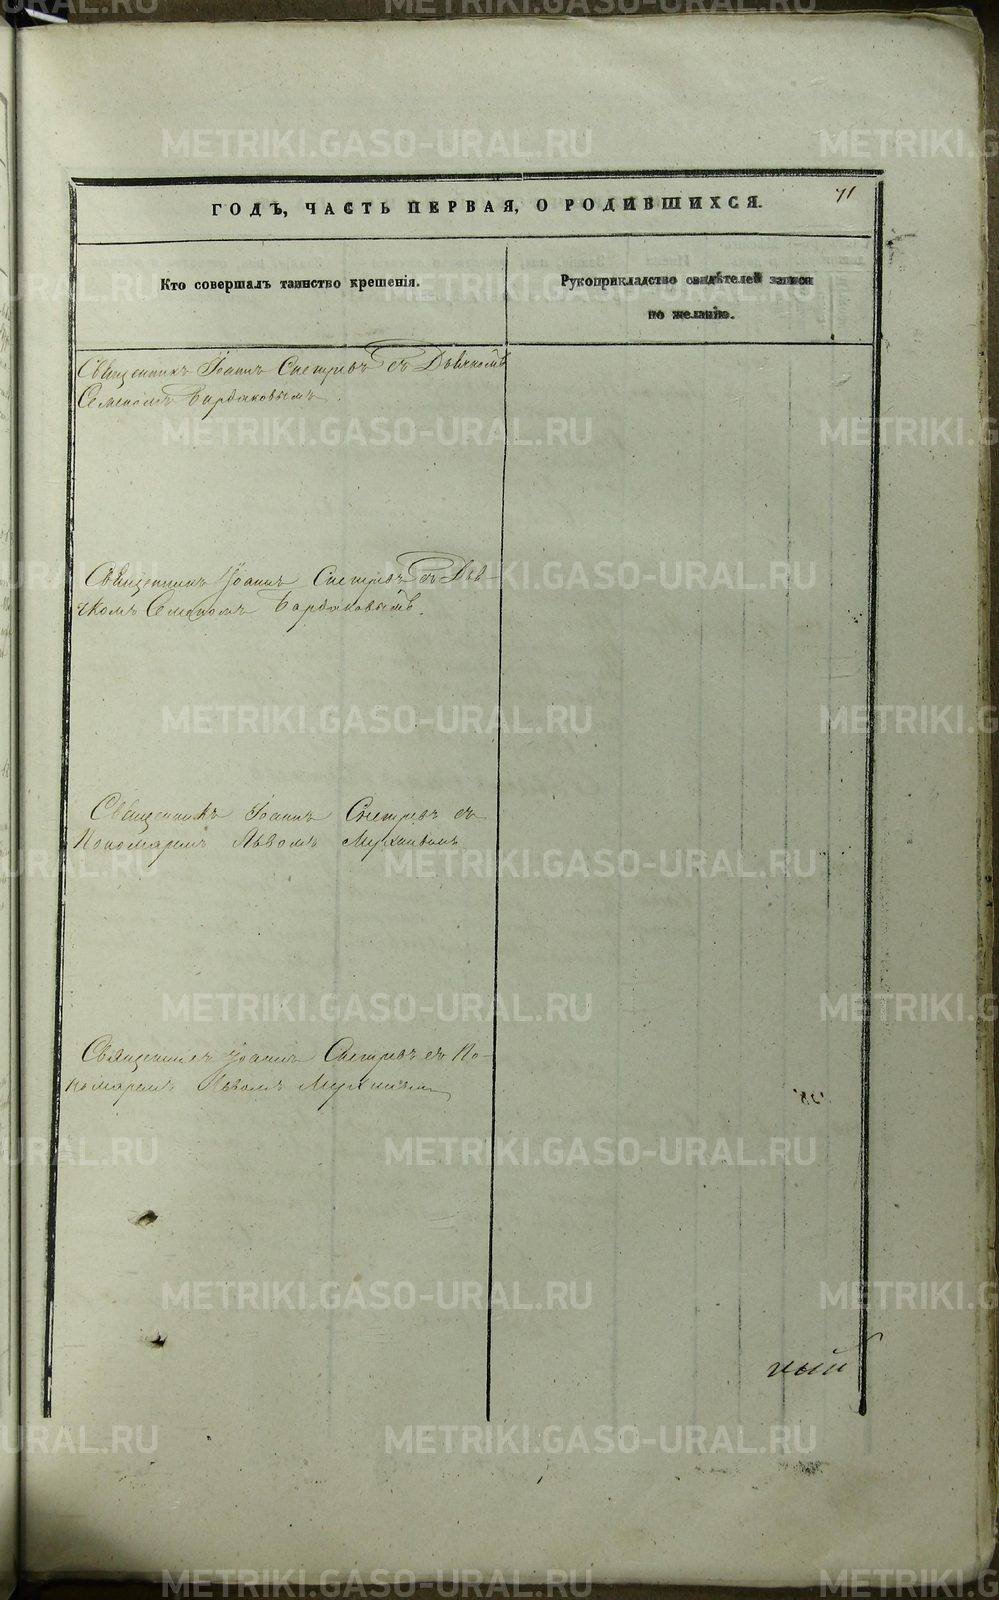 71
ГОДЪ, ЧАСТЬ ПЕРВАЯ, О РОДИВШИХСЯ.
Кто совершалъ таинство крещенія.
Рукоприкладство свидѣтелей записи
по желанію.
Священникъ Іоаннъ Снетревъ съ Дьячкомъ
Семеномъ Бардаковымъ.
Священникъ Іоаннъ Снетревъ съ Дья-
чкомъ Семеномъ Бардаковымъ.
Священникъ Іоаннъ Снетревъ съ
Пономаремъ Львомъ
Священникъ Іоаннъ Снетревъ съ По-
номаремъ Львомъ
ный
METRIKI.GASO-URAL.RU